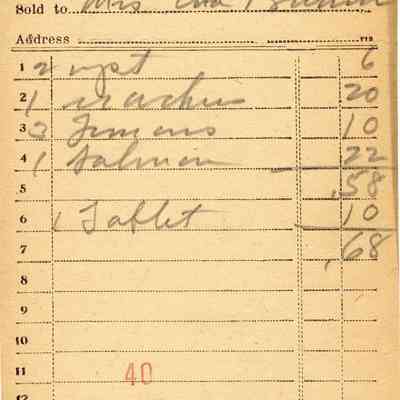 Sold to Mrs
Address
1 2 yest 6
2 1 crackers 20
3 3 Lemons 10
4 1 Salmon 22
5 .58
6 1 Tablet 10
7 .68
8
9
10
11 40
12